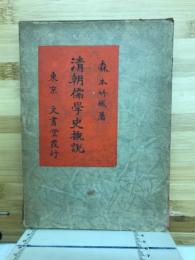 森本竹城著
清朝儒學史概說
東京 文書堂發行